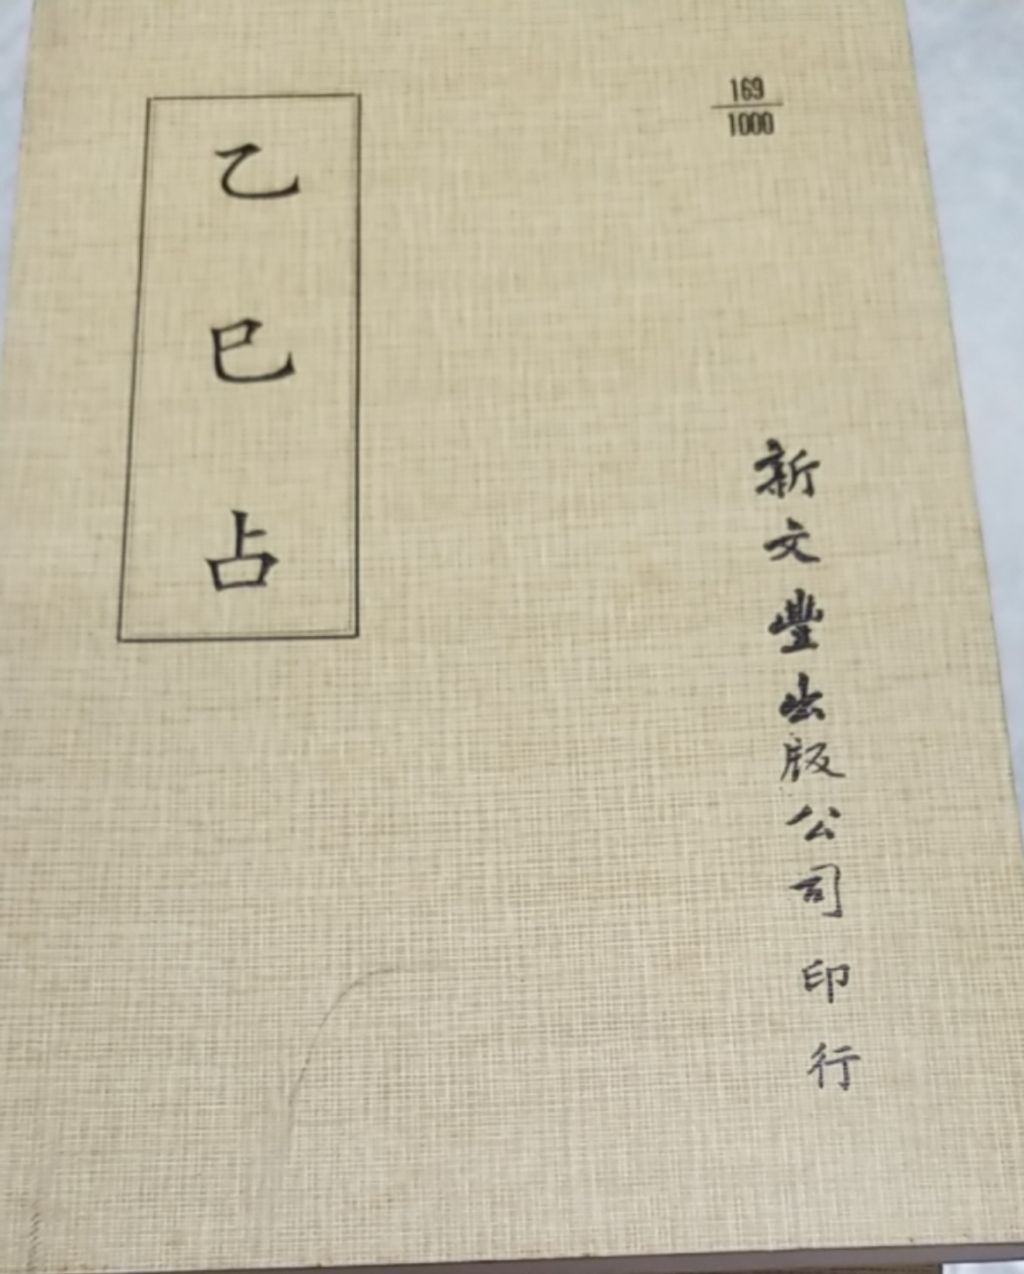 169
1000
新文豐出版公司印行
乙巳占